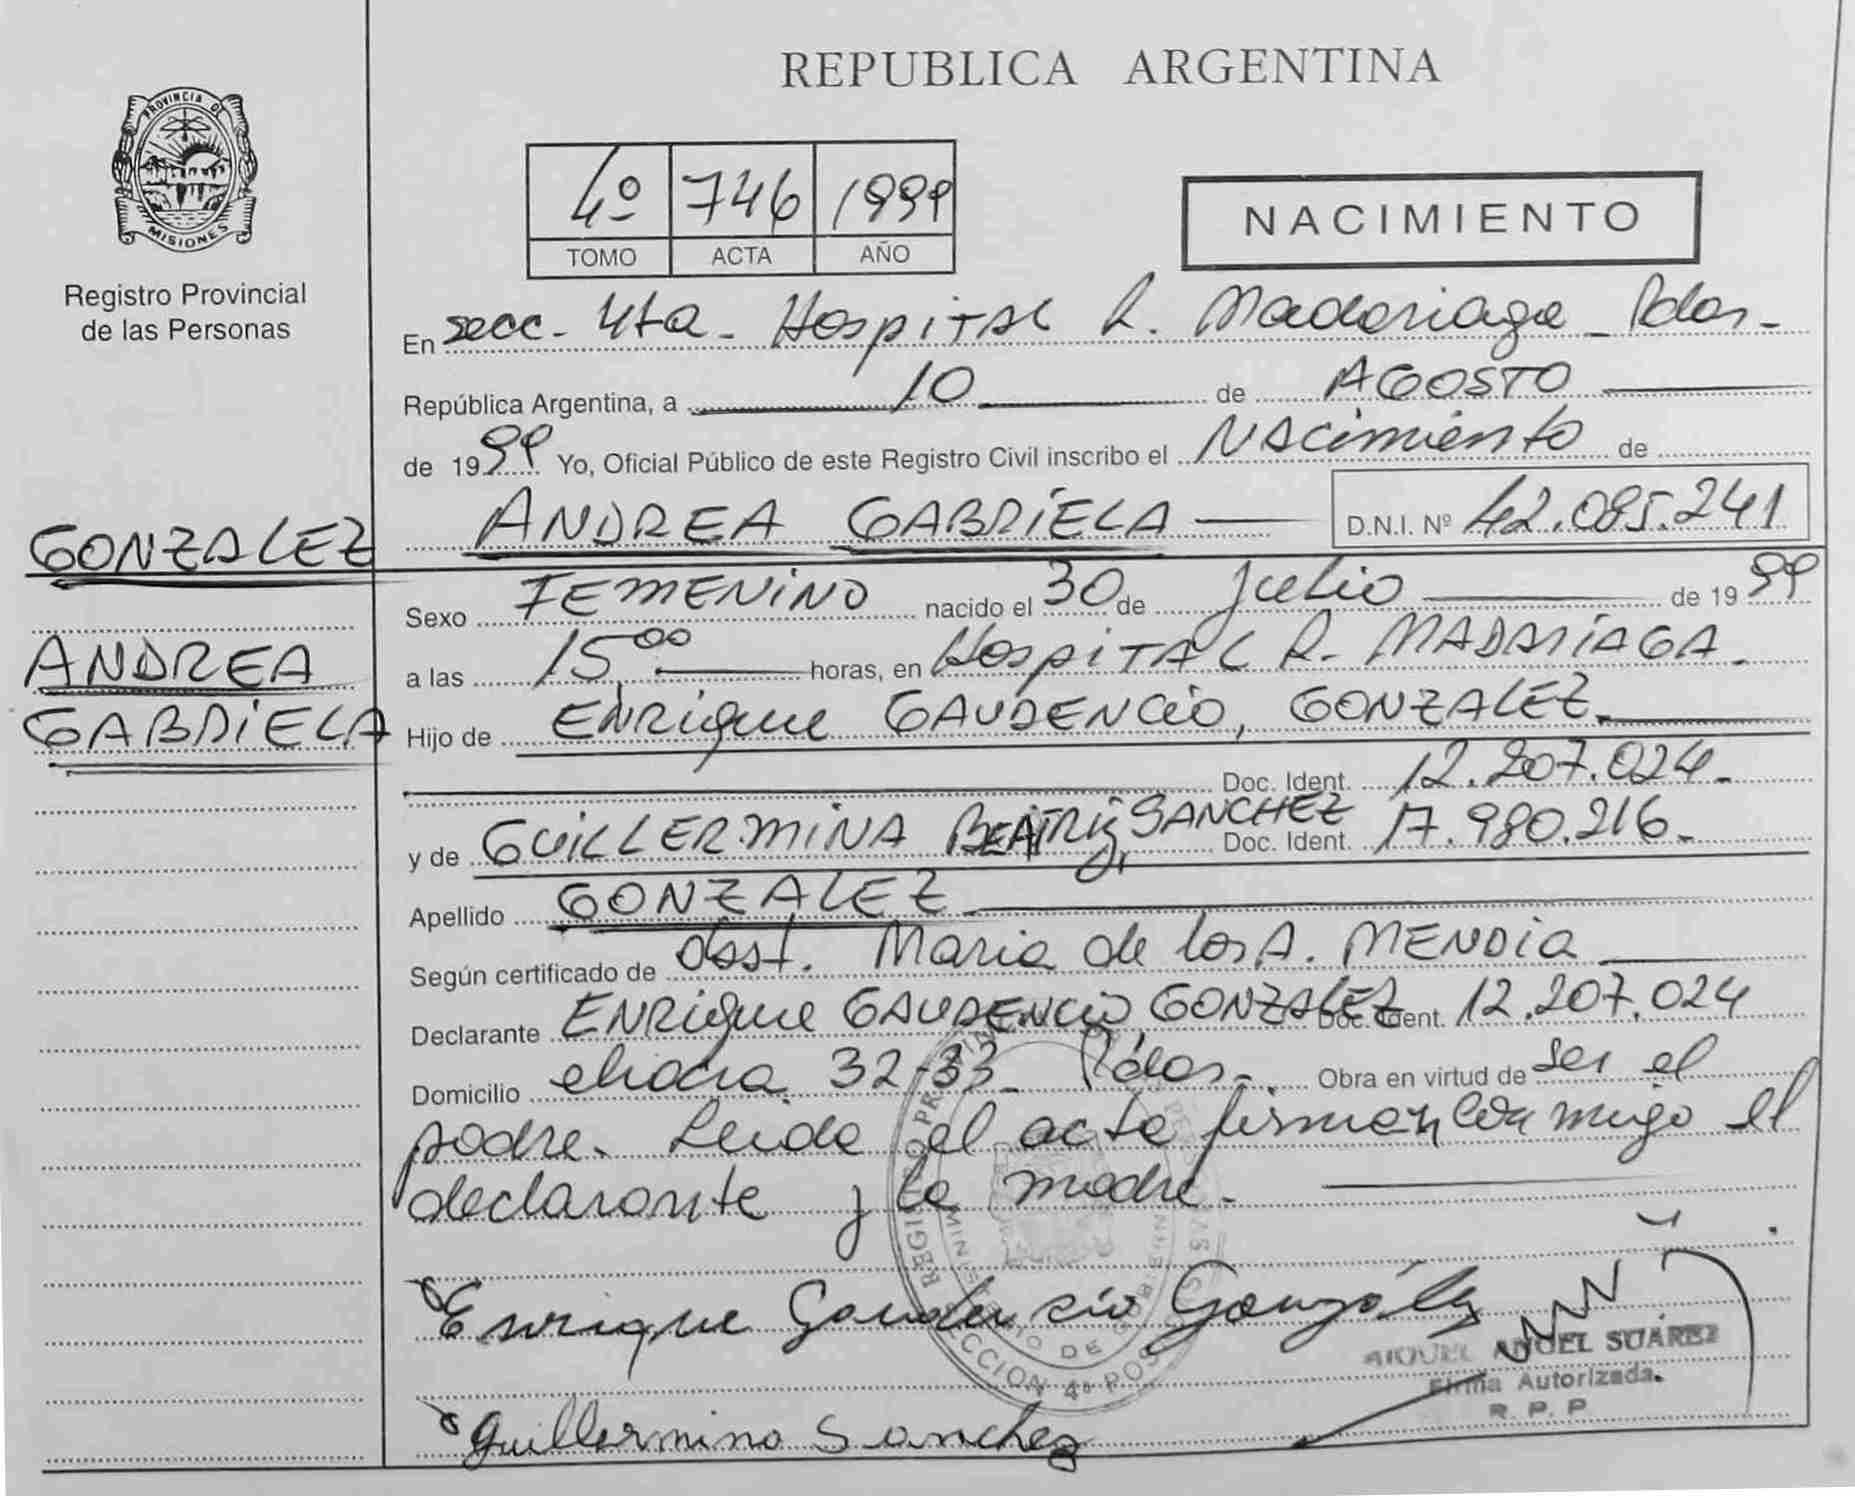 REPUBLICA ARGENTINA
PROVINCIA DE
MISIONES
Registro Provincial
de las Personas
4º 746 1999
TOMO ACTA AÑO
NACIMIENTO
En secc. 4ta. Hospital R. Madariaga - Pdas.
República Argentina, a 10 de AGOSTO
de 1999 Yo, Oficial Público de este Registro Civil inscribo el Nacimiento de
GONZALEZ
ANDREA GABRIELA D.N.I. Nº 42.085.241
ANDREA
GABRIELA
Sexo FEMENINO nacido el 30 de Julio de 1999
a las 15,00 horas, en Hospital R. MADARIAGA.
Hijo de Enrique GAUDENCIO, GONZALEZ.
Doc. Ident. 12.207.024.
y de GUILLERMINA BEATRIZ, SANCHEZ Doc. Ident. 17.980.216.
Apellido GONZALEZ
Según certificado de Obst. Maria de los A. MENDIA
Declarante ENRIQUE GAUDENCIO GONZALEZ Doc. Ident. 12.207.024
Domicilio chacra 32-33. Pdas. Obra en virtud de ser el
padre. Leida el acta firman conmigo el
declarante y la madre.
Enrique Gaudencio González
MIGUEL ANGEL SUÁREZ
Firma Autorizada.
R. P. P
Guillermina Sanchez